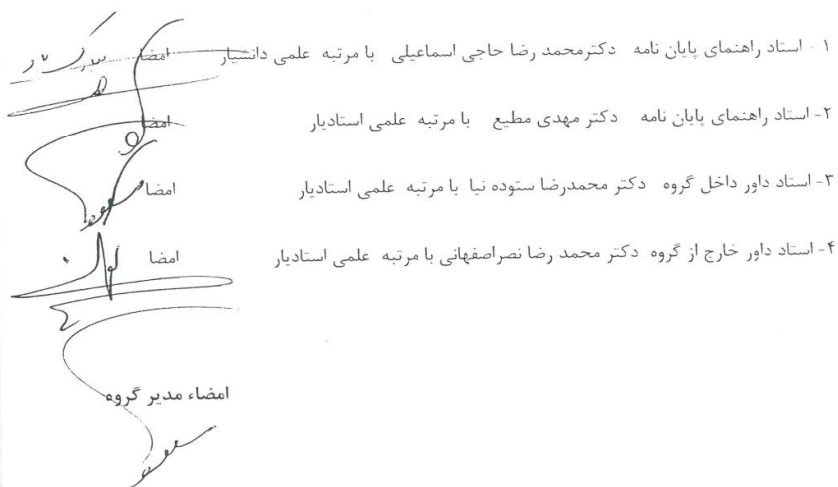 ۱ . استاد راهنمای پایان نامه دکترمحمد رضا حاجی اسماعیلی با مرتبه علمی دانشیار امضا
۲- استاد راهنمای پایان نامه دکتر مهدی مطیع با مرتبه علمی استادیار امضا
۳- استاد داور داخل گروه دکتر محمدرضا ستوده نیا با مرتبه علمی استادیار امضا
۴- استاد داور خارج از گروه دکتر محمد رضا نصراصفهانی با مرتبه علمی استادیار امضا
امضاء مدیر گروه